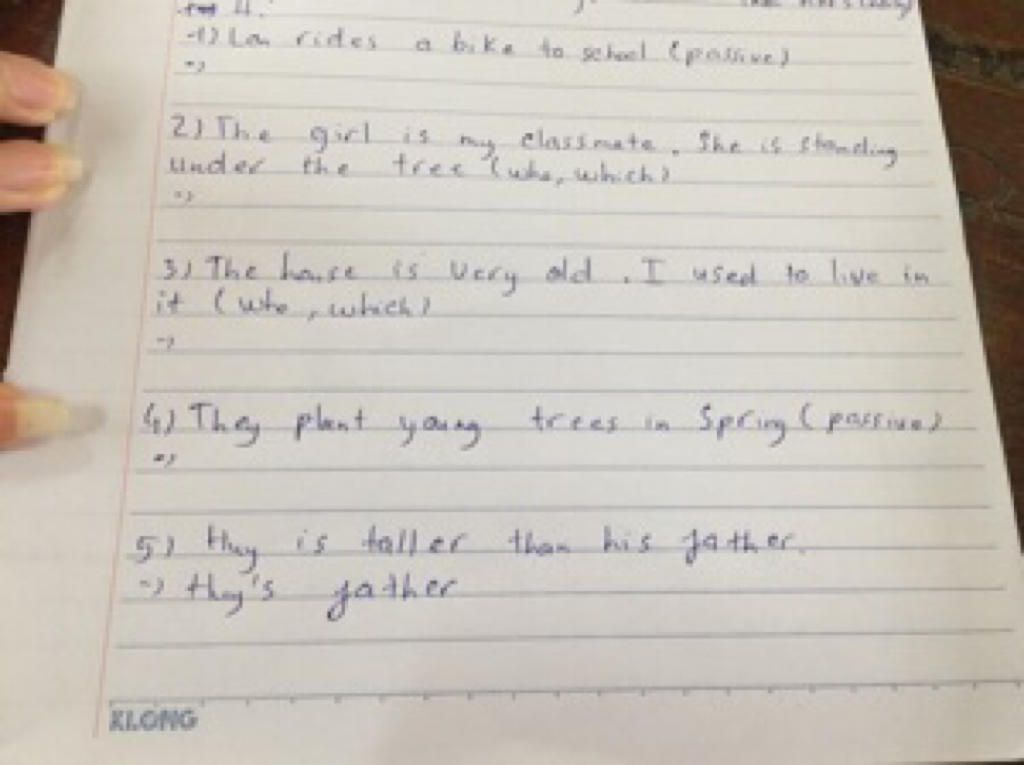 1) Lan rides a bike to school (passive)
->
2) The girl is my classmate. She is standing
under the tree (who, which)
->
3) The house is very old. I used to live in
it (who, which)
->
4) They plant young trees in Spring (passive)
->
5) Huy is taller than his father.
-> Huy's father
KLONG